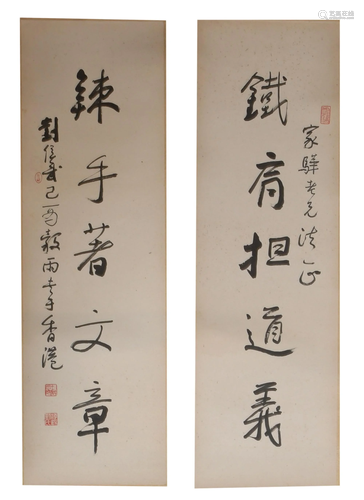 家驊老兄法正
鐵肩担道義
辣手著文章
劉侯武己酉穀雨書于香港